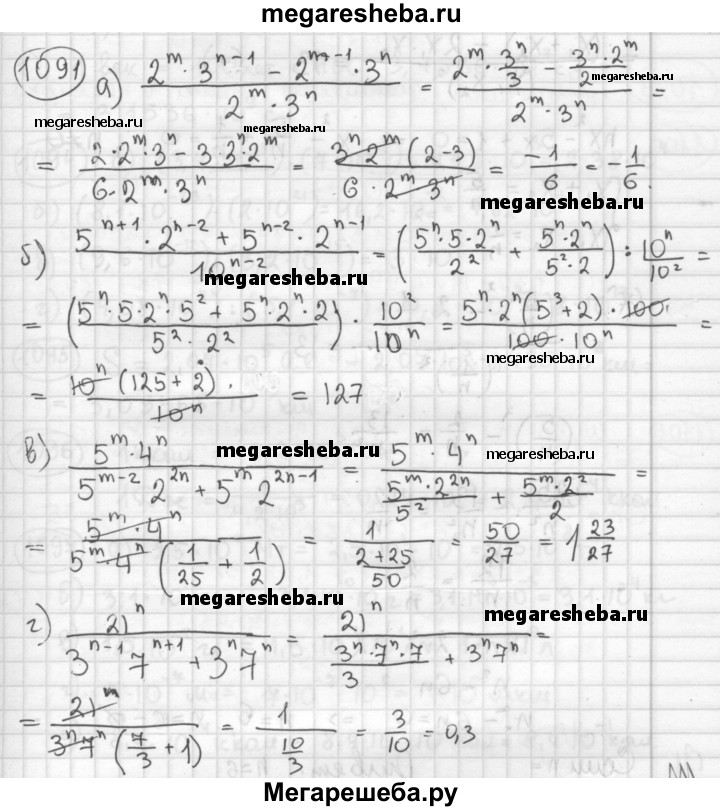 megaresheba.ru
1091 а) (2^m · 3^(n-1) − 2^(m-1) · 3^n)/(2^m · 3^n) = (2^m · 3^n/3 − 3^n · 2^m/2)/(2^m · 3^n) =
megaresheba.ru megaresheba.ru megaresheba.ru
= (2 · 2^m · 3^n − 3 · 3^n · 2^m)/(6 · 2^m · 3^n) = (3^n 2^m (2−3))/(6 · 2^m 3^n) = −1/6 = −1/6.
megaresheba.ru
б) (5^(n+1) · 2^(n−2) + 5^(n−2) · 2^(n−1))/10^(n−2) = (5^n · 5 · 2^n/2^2 + 5^n · 2^n/(5^2 · 2)) : 10^n/10^2 =
megaresheba.ru
= ((5^n · 5 · 2^n · 5^2 + 5^n · 2^n · 2)/(5^2 · 2^2)) · 10^2/10^n = (5^n · 2^n (5^3 + 2) · 100)/(100 · 10^n) =
megaresheba.ru
= (10^n (125 + 2) ·)/10^n = 127
в) (5^m · 4^n)/(5^(m−2) 2^(2n) + 5^m 2^(2n−1)) = (5^m · 4^n)/(5^m · 2^(2n)/5^2 + 5^m · 2^2/2) =
megaresheba.ru megaresheba.ru
= (5^m · 4^n)/(5^m · 4^n (1/25 + 1/2)) = 1/((2+25)/50) = 50/27 = 1 23/27
megaresheba.ru megaresheba.ru
г) 21^n/(3^(n−1) 7^(n+1) + 3^n 7^n) = 21^n/(3^n · 7^n · 7/3 + 3^n 7^n) =
= 21^n/(3^n 7^n (7/3 + 1)) = 1/(10/3) = 3/10 = 0,3
Мегарешеба.ру